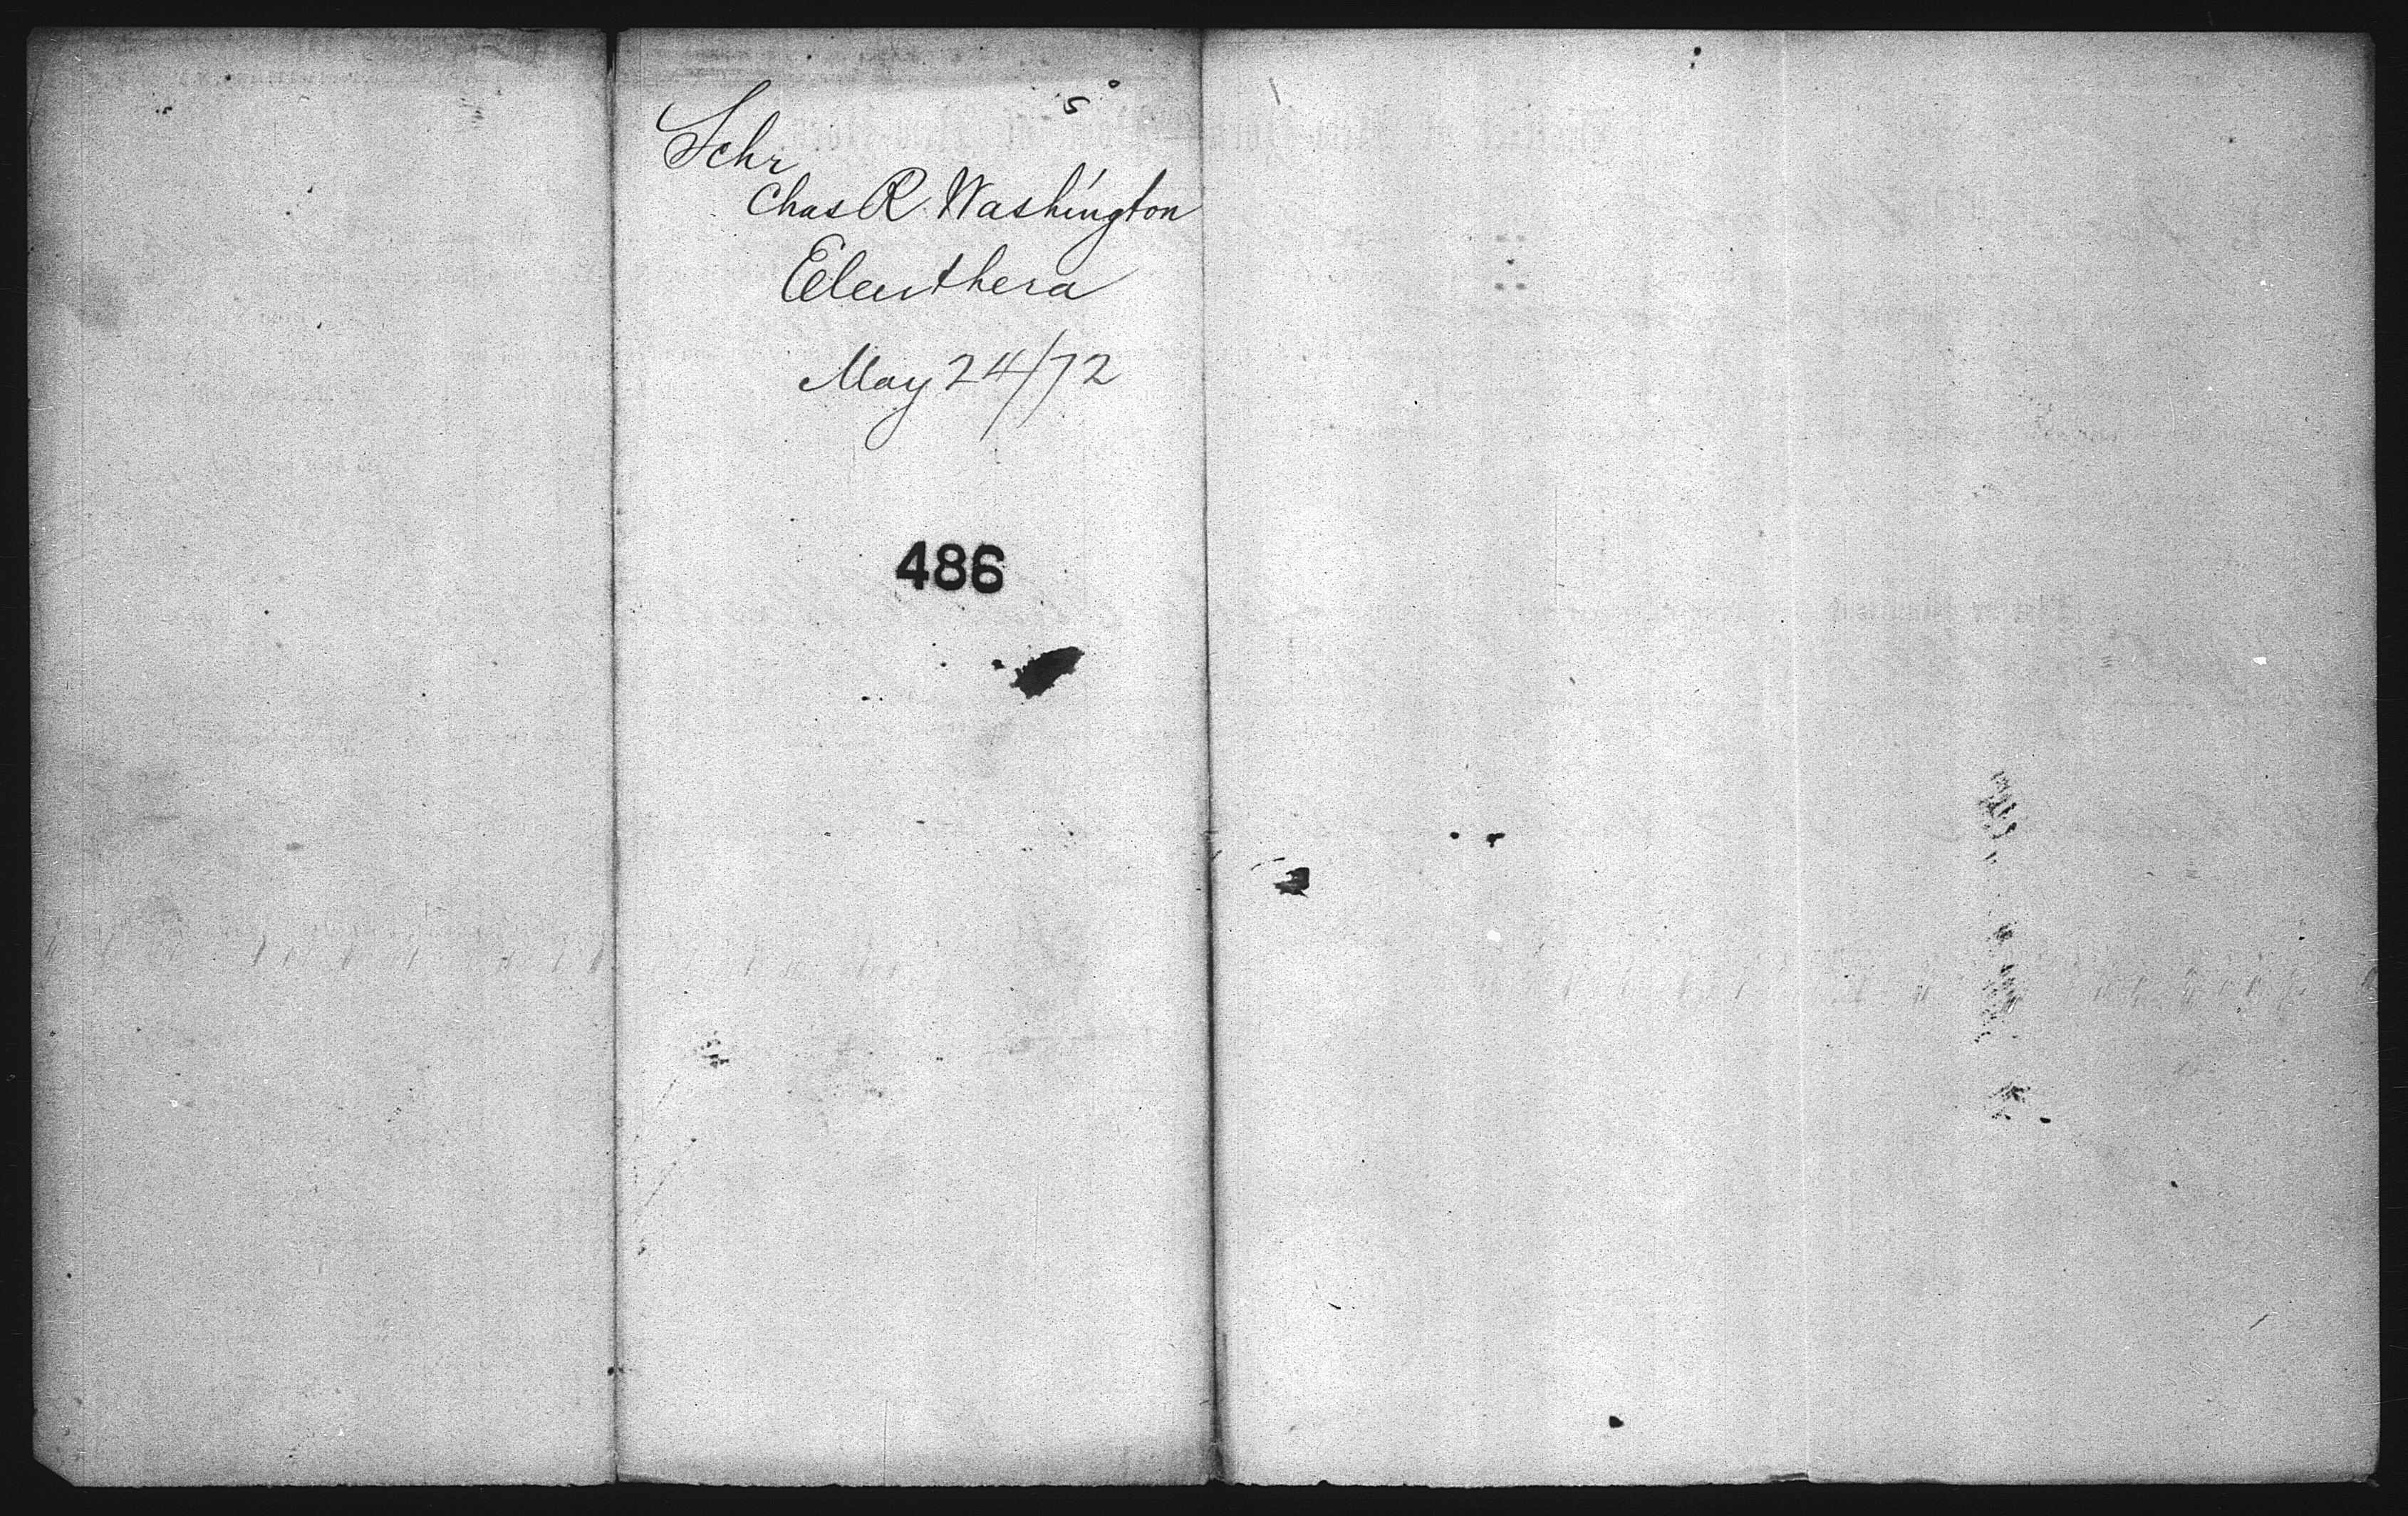 Schr
Chas R. Washington
Eleuthera
May 24/72
486